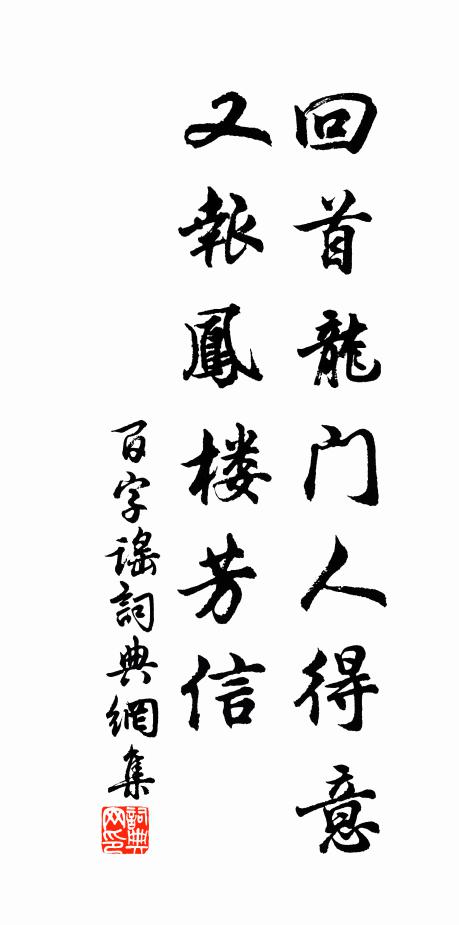 回首龍门人得意
又報鳳楼芳信
百字謠詞典網集
詞典网印